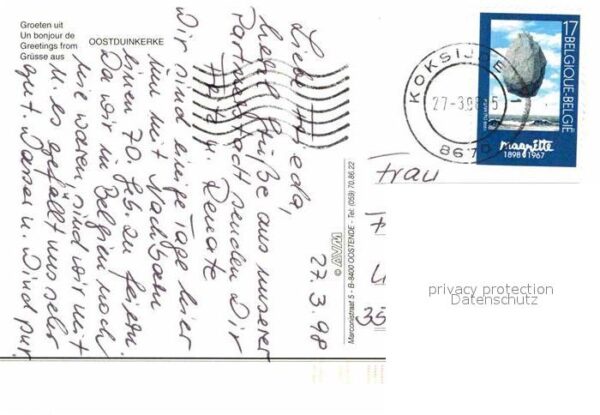 Groeten uit
Un bonjour de
Greetings from
Grüsse aus
OOSTDUINKERKE
27.3.98
Liebe Frieda,
herzl. Grüße aus unserer
Partnerstadt senden Dir
Renate
Wir sind einige Tage hier
um mit Nachbarn
einen 70. Gb. zu feiern.
Da wir in Belgien noch
nie waren, sind wir mit
u. es gefällt uns sehr
gut. Wasser u. Wind pur.
© MVM
Marconistraat 5 - B-8400 OOSTENDE - Tel. (059) 70.86.22
KOKSIJDE 1
27-3.98
8670
17 BELGIQUE-BELGIË
magritte
1898 1967
Frau
35
privacy protection
Datenschutz